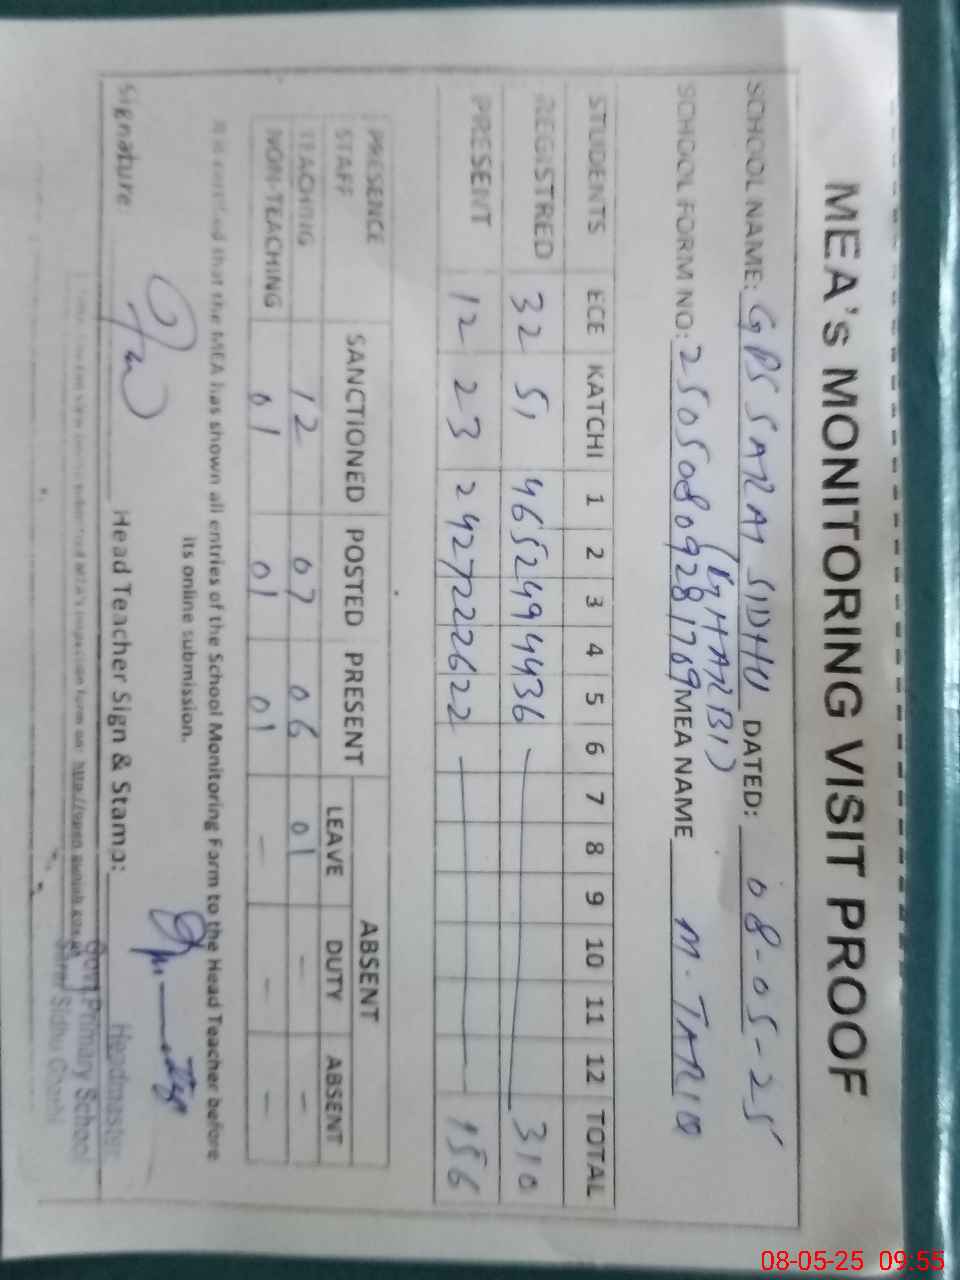 MEA's MONITORING VISIT PROOF
SCHOOL NAME: GPS SARAI SIDHU DATED: 08-05-25
(GHARBI)
SCHOOL FORM NO: 25050809281769 MEA NAME M. TARIQ
STUDENTS ECE KATCHI 1 2 3 4 5 6 7 8 9 10 11 12 TOTAL
REGISTRED 32 51 46 52 49 44 36 310
PRESENT 12 23 24 27 22 26 22 156
PRESENCE STAFF SANCTIONED POSTED PRESENT ABSENT
LEAVE DUTY ABSENT
TEACHING 12 07 06 01 - -
NON-TEACHING 01 01 01 - - -
It is certified that the MEA has shown all entries of the School Monitoring Form to the Head Teacher before
its online submission.
Signature: Head Teacher Sign & Stamp:
Headmaster
Govt Primary School
Sidhu
08-05-25 09:55